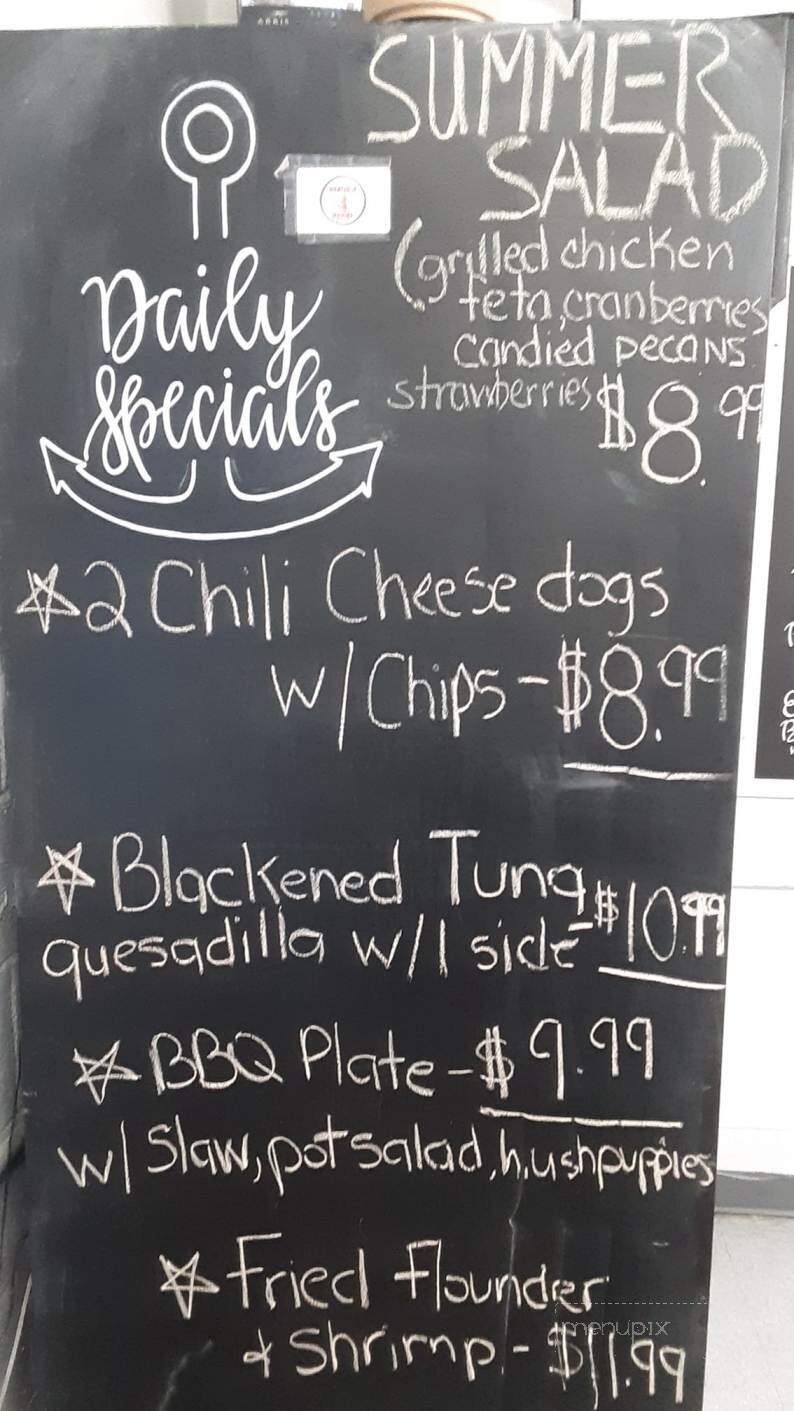 Daily
Specials
SUMMER
SALAD
(grilled chicken
feta, cranberries
candied pecans
strawberries $8.99
☆2 Chili Cheese dogs
w/Chips - $8.99
☆ Blackened Tuna
quesadilla w/1 side - $10.99
☆ BBQ Plate - $9.99
w/ Slaw, pot salad, hushpuppies
☆ Fried Flounder
& Shrimp - $11.99
menupix